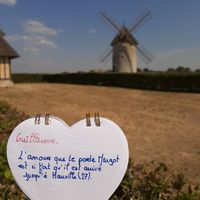 Guillaume,
L'amour que le poète Margot
est si fort qu'il est arrivé
jusqu'à Hauville (27).